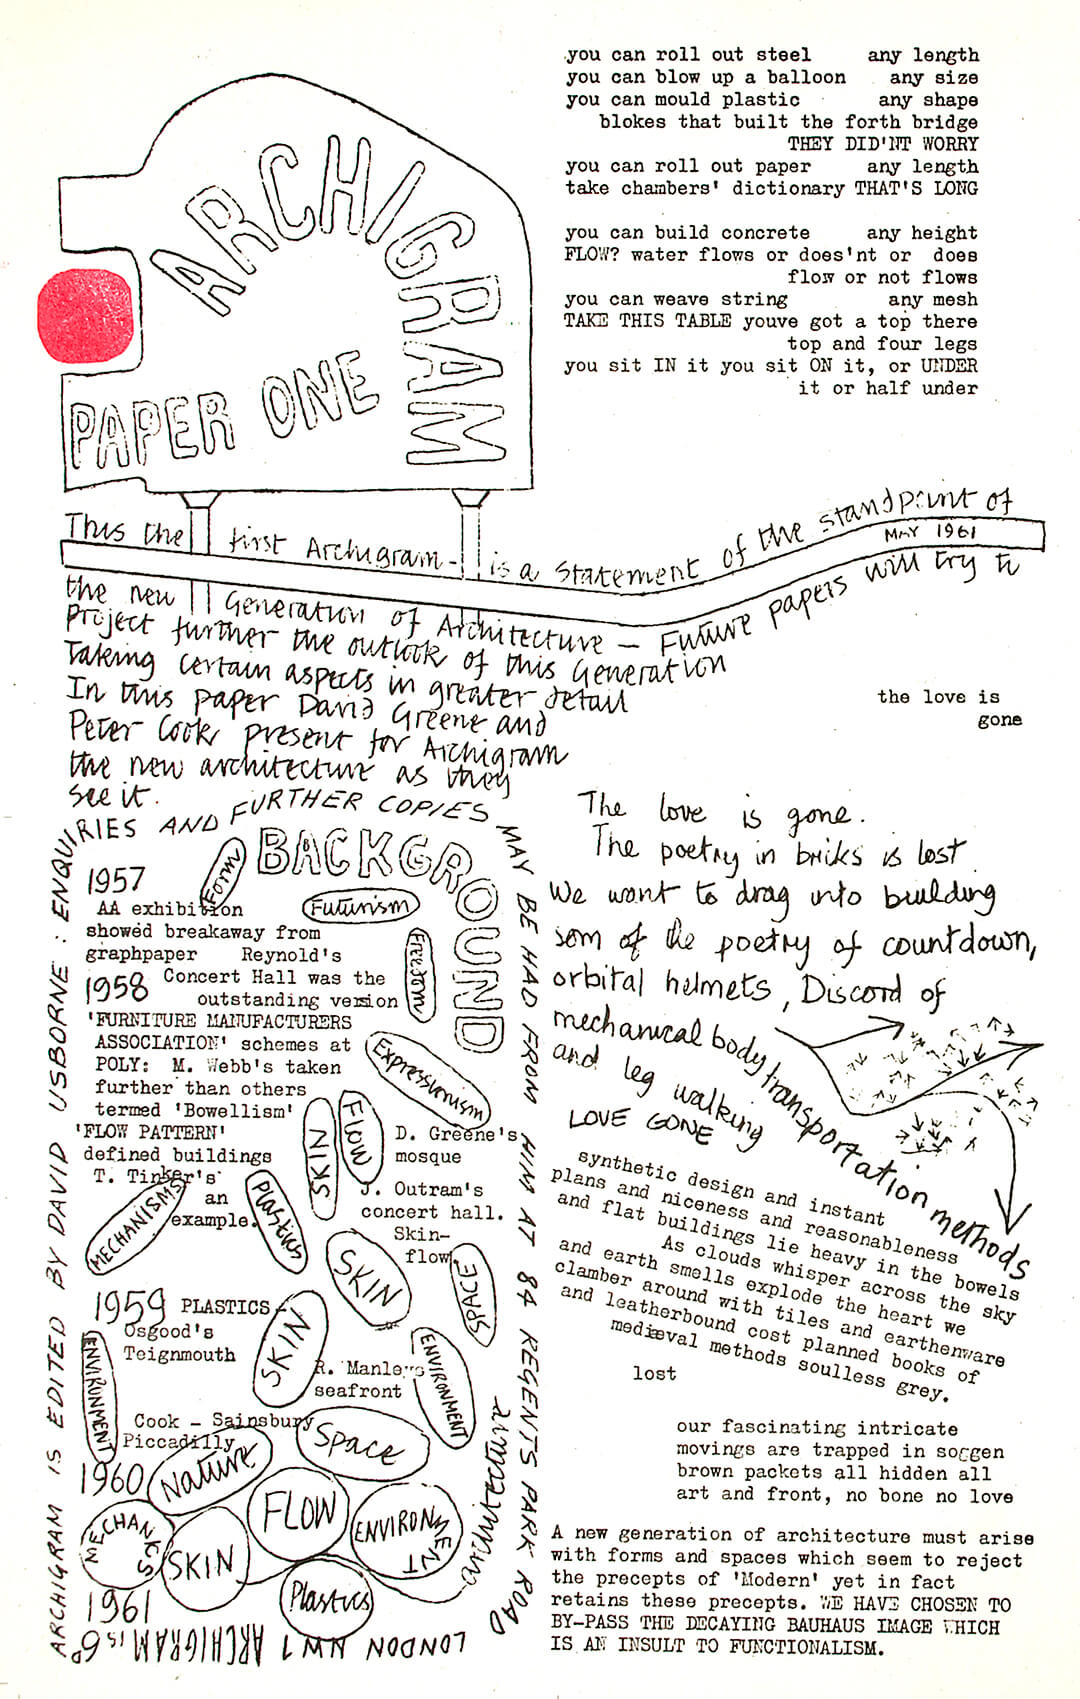 ARCHIGRAM
PAPER ONE
you can roll out steel any length
you can blow up a balloon any size
you can mould plastic any shape
blokes that built the forth bridge
THEY DID'NT WORRY
you can roll out paper any length
take chambers' dictionary THAT'S LONG
you can build concrete any height
FLOW? water flows or does'nt or does
flow or not flows
you can weave string any mesh
TAKE THIS TABLE youve got a top there
top and four legs
you sit IN it you sit ON it, or UNDER
it or half under
This the first Archigram - is a statement of the standpoint of
MAY 1961
the new Generation of Architecture — Future papers will try to
Project further the outlook of this Generation
Taking certain aspects in greater detail
In this paper David Greene and
Peter Cook, present for Archigram
the new architecture as they
see it.
ARCHIGRAM IS EDITED BY DAVID USBORNE : ENQUIRIES AND FURTHER COPIES MAY BE HAD FROM HIM AT 84 REGENTS PARK ROAD
LONDON NW1 ARCHIGRAM IS 6P
BACKGROUND
Form
Futurism
Freedom
1957
AA exhibition
showed breakaway from
graphpaper Reynold's
1958 Concert Hall was the
outstanding vexsion
'FURNITURE MANUFACTURERS
ASSOCIATION' schemes at
POLY: M. Webb's taken
further than others
termed 'Bowellism'
'FLOW PATTERN'
defined buildings
T. Tinker's
an
example.
Expressionism
FLOW
SKIN
D. Greene's
mosque
J. Outram's
concert hall.
Skin-
flow
MECHANISMS
Plastics
SKIN
SPACE
1959 PLASTICS-
Osgood's
Teignmouth
SKIN
R. Manley's
seafront
ENVIRONMENT
ENVIRONMENT
Cook - Sainsbury
Piccadilly
1960
Nature
Space
architecture
FLOW
ENVIRONMENT
MECHANKS
SKIN
Plastics
1961
the love is
gone
The love is gone.
The poetry in bricks is lost
We want to drag into building
som of the poetry of countdown,
orbital helmets, Discord of
mechanical body transportation methods
and leg walking
LOVE GONE
synthetic design and instant
plans and niceness and reasonableness
and flat buildings lie heavy in the bowels
As clouds whisper across the sky
and earth smells explode the heart we
clamber around with tiles and earthenware
and leatherbound cost planned books of
mediæval methods soulless grey.
lost
our fascinating intricate
movings are trapped in soggen
brown packets all hidden all
art and front, no bone no love
A new generation of architecture must arise
with forms and spaces which seem to reject
the precepts of 'Modern' yet in fact
retains these precepts. WE HAVE CHOSEN TO
BY-PASS THE DECAYING BAUHAUS IMAGE WHICH
IS AN INSULT TO FUNCTIONALISM.